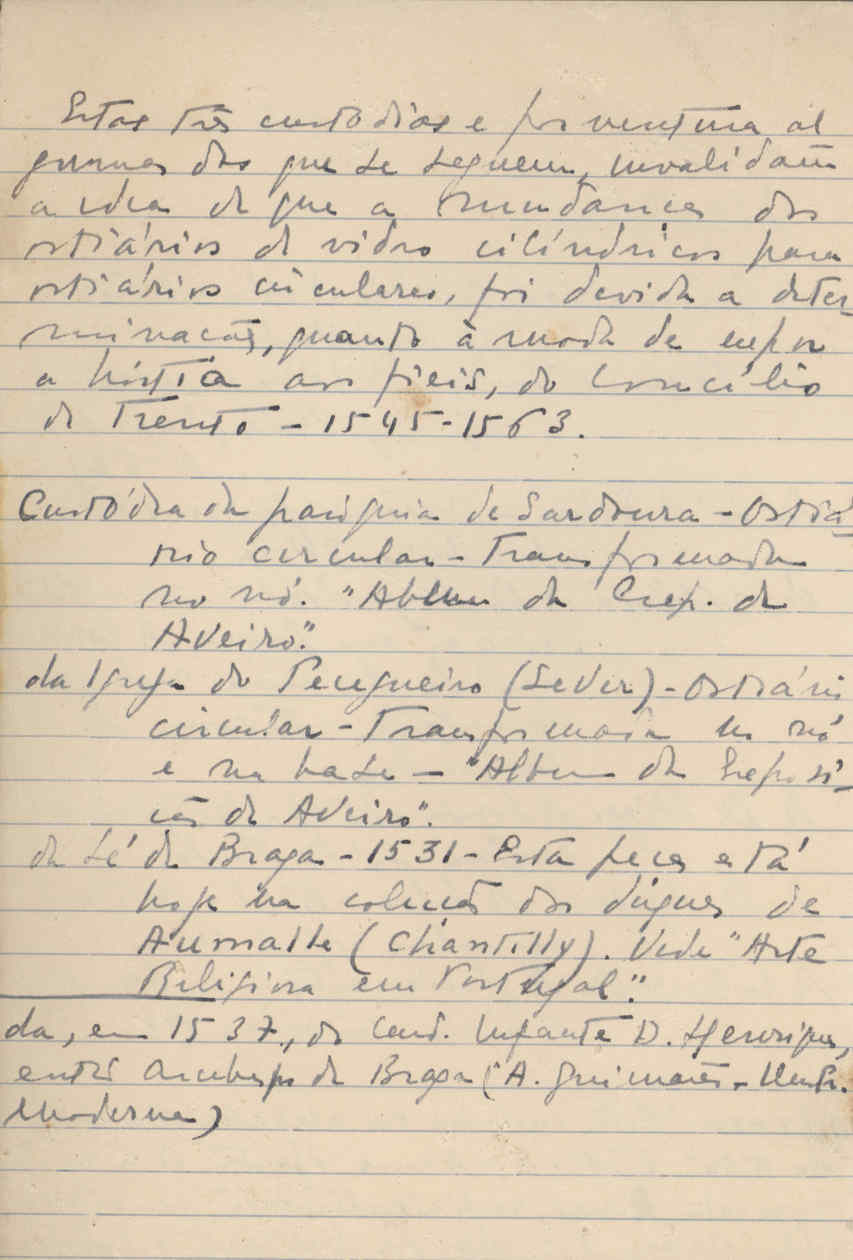 Estas três custódias e porventura al
gumas das que se seguem, invalidam
a idea de que a mudança dos
ostiários de vidro cilíndricos para
ostiários circulares, foi devida a deter-
minação, quanto à moda de expor
a hóstia aos fieis, do Concílio
de Trento - 1545-1563.
Custódia da paróquia de Sardoura - Ostiá-
rio circular - Transformada
no nó. "Album da Exp. de
Aveiro".
da Igreja do Pecegueiro (Sever) - Ostiário
circular - Transformada no nó
e na base - "Album da Exposi-
ção de Aveiro".
da Sé de Braga - 1531 - Esta peça está
hoje na coleção dos duques de
Aumalle (Chantilly). Vide "Arte
Religiosa em Portugal".
da, em 1537, do Infante D. Henrique,
então Arcebispo de Braga (A. Guimarães.
Moderna)